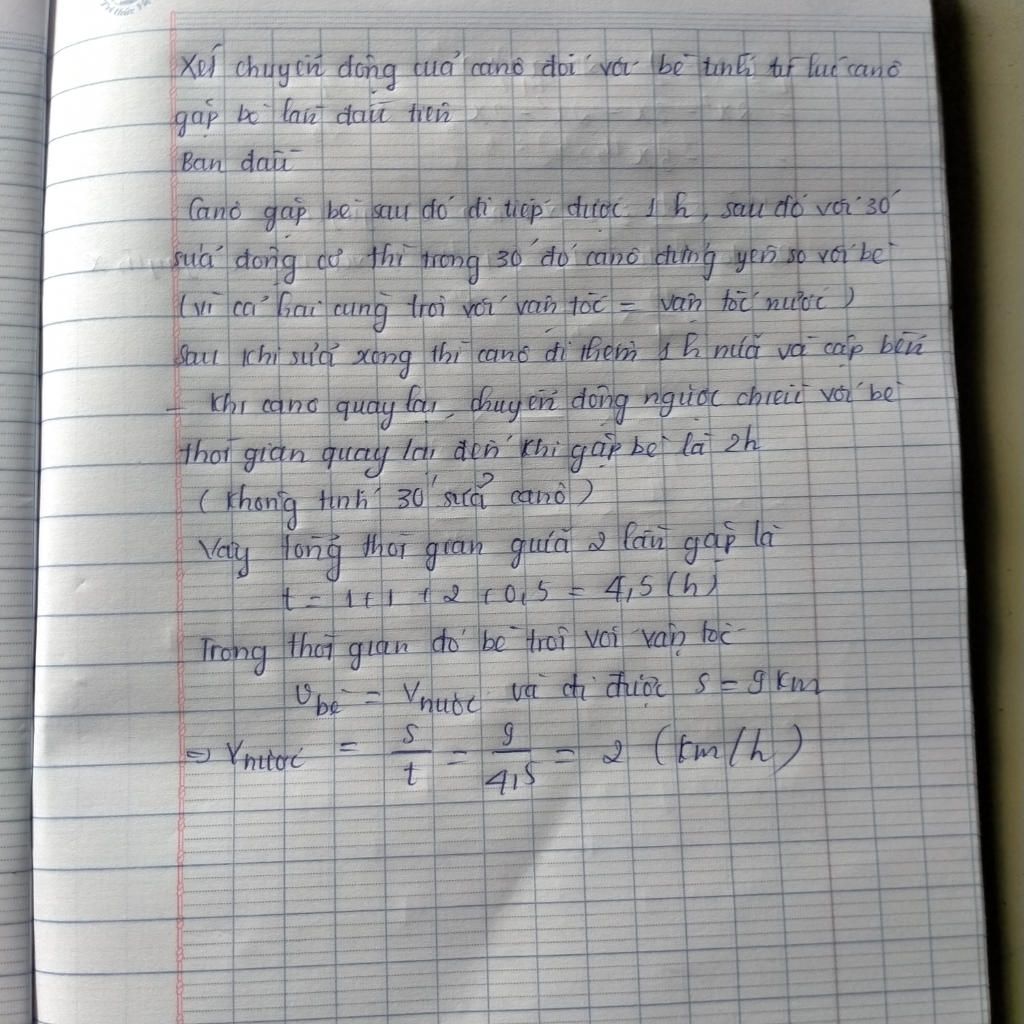 Xét chuyển động của canô đối với bè tính từ lúc canô
gặp bè lần đầu tiên
Ban đầu
Canô gặp bè sau đó đi tiếp được 1 h, sau đó với 30'
sửa động cơ thì trong 30' đó canô đứng yên so với bè
(vì cả hai cùng trôi với vận tốc = vận tốc nước)
Sau khi sửa xong thì canô đi thêm 1 h nữa và cập bến
- Khi canô quay lại, chuyển động ngược chiều với bè
thời gian quay lại đến khi gặp bè là 2h
(không tính 30' sửa canô)
Vậy tổng thời gian giữa 2 lần gặp là
t = 1+1+2+0,5 = 4,5 (h)
Trong thời gian đó bè trôi với vận tốc
v bè = v nước và đi được s = 9 km
=> v nước = s/t = 9/4,5 = 2 (km/h)